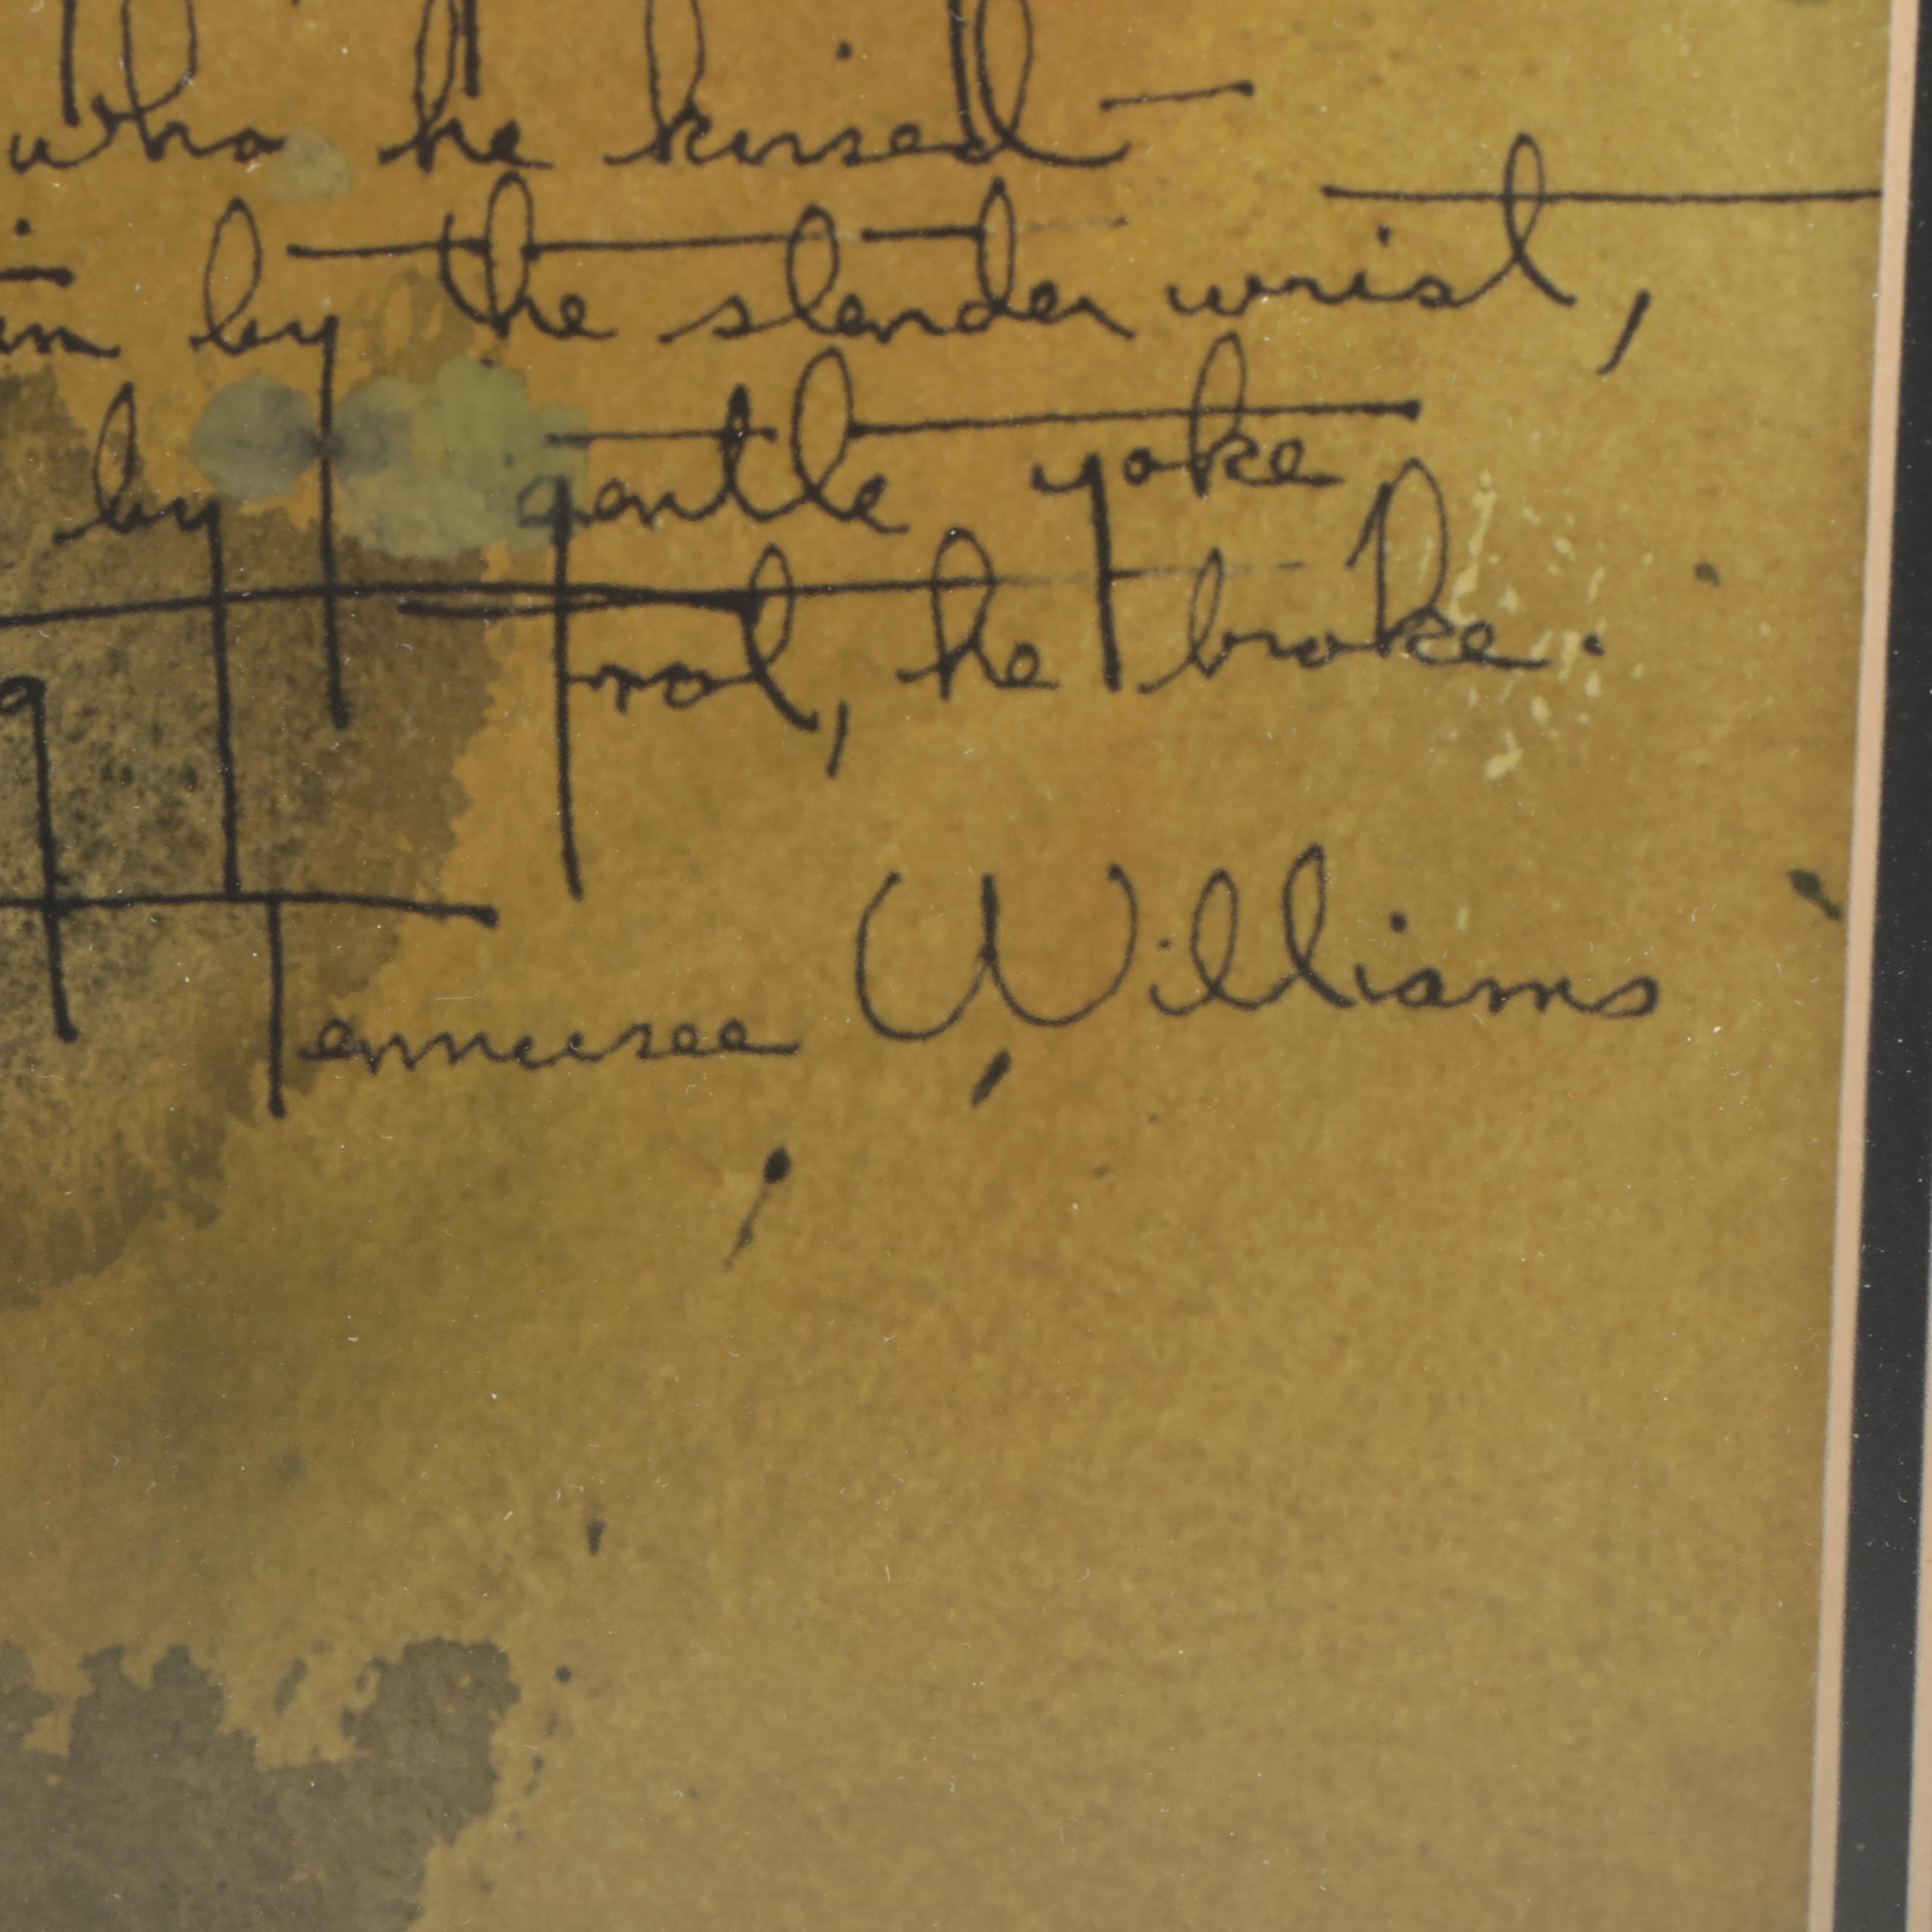 who he kissed —
im by the slender wrist,
by gentle yoke
not, he broke.
Tennessee Williams